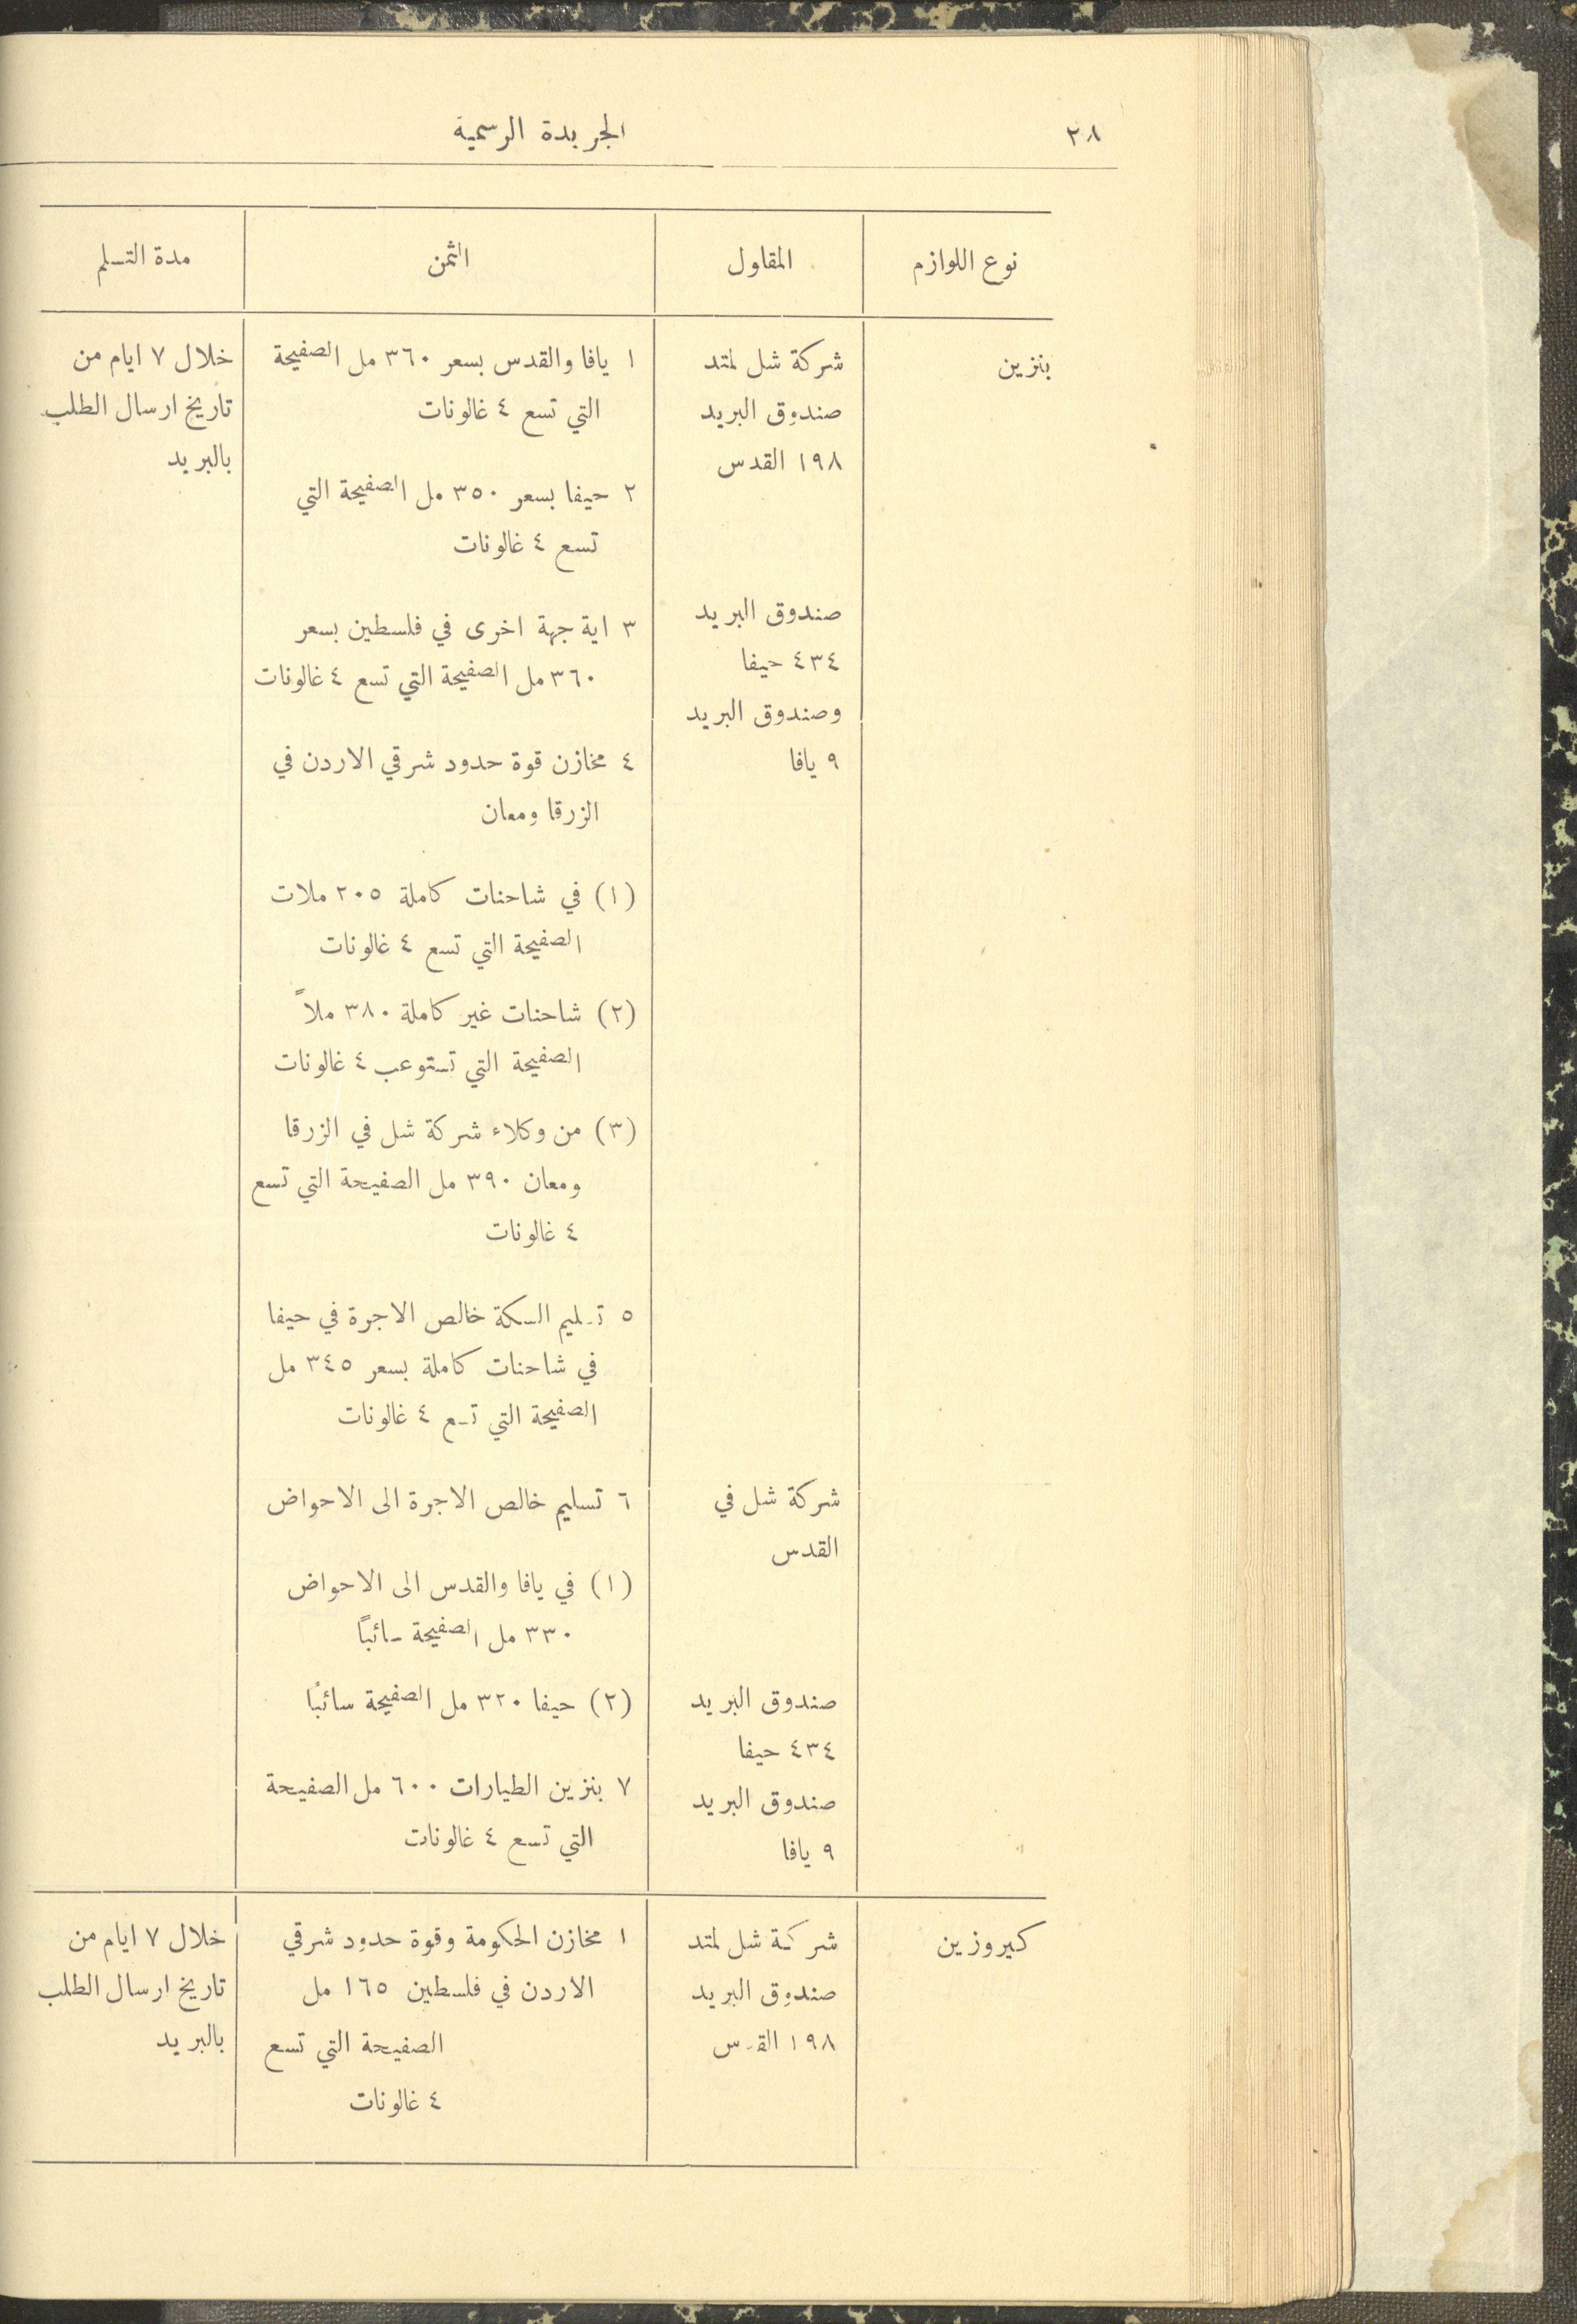 ٢٨
الجريدة الرسمية
نوع اللوازم
المقاول
الثمن
مدة التسلم
بنزين
شركة شل لمتد
صندوق البريد
١٩٨ القدس
صندوق البريد
٤٣٤ حيفا
وصندوق البريد
٩ يافا
شركة شل في
القدس
صندوق البريد
٤٣٤ حيفا
صندوق البريد
٩ يافا
١ يافا والقدس بسعر ٣٦٠ مل الصفيحة
التي تسع ٤ غالونات
٢ حيفا بسعر ٣٥٠ مل الصفيحة التي
تسع ٤ غالونات
٣ اية جهة اخرى في فلسطين بسعر
٣٦٠ مل الصفيحة التي تسع ٤ غالونات
٤ مخازن قوة حدود شرقي الاردن في
الزرقا ومعان
(١) في شاحنات كاملة ٢٠٥ ملات
الصفيحة التي تسع ٤ غالونات
(٢) شاحنات غير كاملة ٣٨٠ ملاً
الصفيحة التي تستوعب ٤ غالونات
(٣) من وكلاء شركة شل في الزرقا
ومعان ٣٩٠ مل الصفيحة التي تسع
٤ غالونات
٥ تسليم السكة خالص الاجرة في حيفا
في شاحنات كاملة بسعر ٣٤٥ مل
الصفيحة التي تسع ٤ غالونات
٦ تسليم خالص الاجرة الى الاحواض
(١) في يافا والقدس الى الاحواض
٣٣٠ مل الصفيحة سائباً
(٢) حيفا ٣٢٠ مل الصفيحة سائبًا
٧ بنزين الطيارات ٦٠٠ مل الصفيحة
التي تسع ٤ غالونات
خلال ٧ ايام من
تاريخ ارسال الطلب
بالبريد
كيروزين
شركة شل لمتد
صندوق البريد
١٩٨ القدس
١ مخازن الحكومة وقوة حدود شرقي
الاردن في فلسطين ١٦٥ مل
الصفيحة التي تسع
٤ غالونات
خلال ٧ ايام من
تاريخ ارسال الطلب
بالبريد